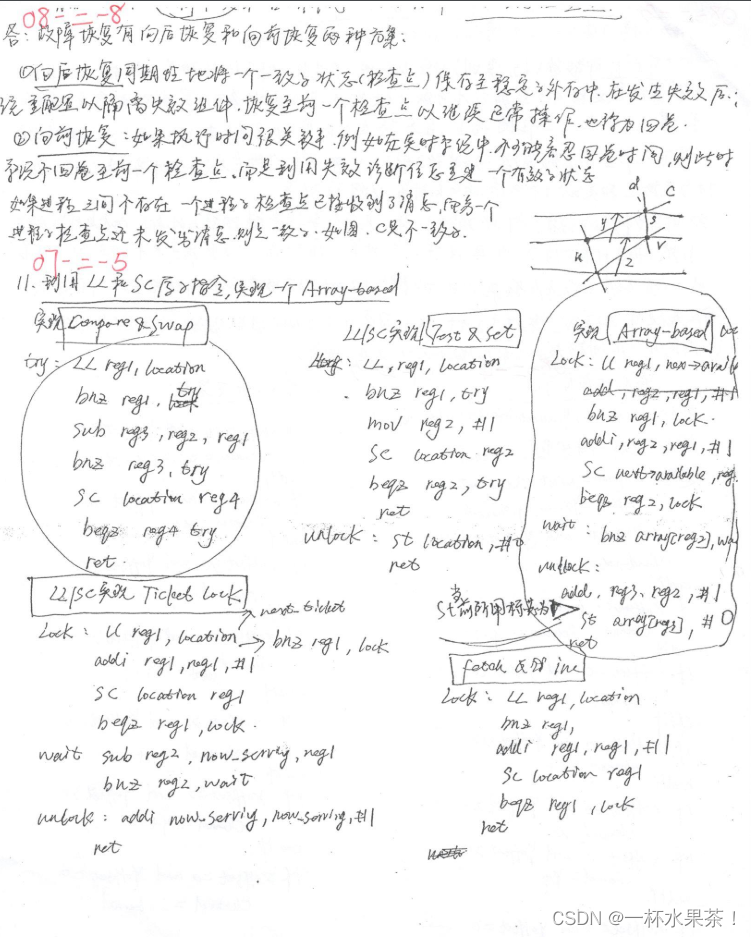 08-二-8
答：故障恢复有向后恢复和向前恢复两种方案：
①向后恢复周期性地将一个一致的状态(检查点)保存至稳定的外存中.在发生失效后，
统重配置以隔离失效组件.恢复至前一个检查点以继续正常操作.也称为回卷.
②向前恢复：如果执行时间很关键.例如在实时系统中.不能忍回卷时间，则此时
系统不回卷至前一个检查点.而是利用失效诊断信息重建一个有效的状态
如果进程之间不存在一个进程的检查点已接收到了消息，而另一个
进程的检查点还未发出消息.则是一致的.如图.C是不一致的.
d C
y s
u z v
07-二-5
11.利用LL和SC原子指令,实现一个Array-based
实现 Compare & Swap
try: LL reg1, location
bnz reg1, try
sub reg3, reg2, reg1
bnz reg3, try
SC location reg4
beqz reg4 try
ret.
LL/SC实现 Test & set
: LL, reg1, location
bnz reg1, try
mov reg2, #1
SC location reg2
beqz reg2, try
ret
unlock: st location, #0
ret
实现 Array-based
Lock: LL reg1, next->availa
add, reg2, reg1, #1
bnz reg1, lock.
addi, reg2, reg1, #1
SC next->available, reg
beqz reg2, lock
wait: bnz array[reg2], wa
unlock:
add. reg3. reg2, #1
st array[reg3], #0
ret
LL/SC实现 Ticket Lock
next_ticket
Lock: LL reg1, location → bnz reg1, lock
addi reg1, reg1, #1
SC location reg1
beqz reg1, lock.
wait sub reg2, now_serving, reg1
bnz reg2, wait
unlock: addi now_serving, now_serving, #1
ret
fetch & inc
Lock: LL reg1, location
bnz reg1,
addi reg1, reg1, #1
SC location reg1
beqz reg1, lock
ret
CSDN @一杯水果茶！